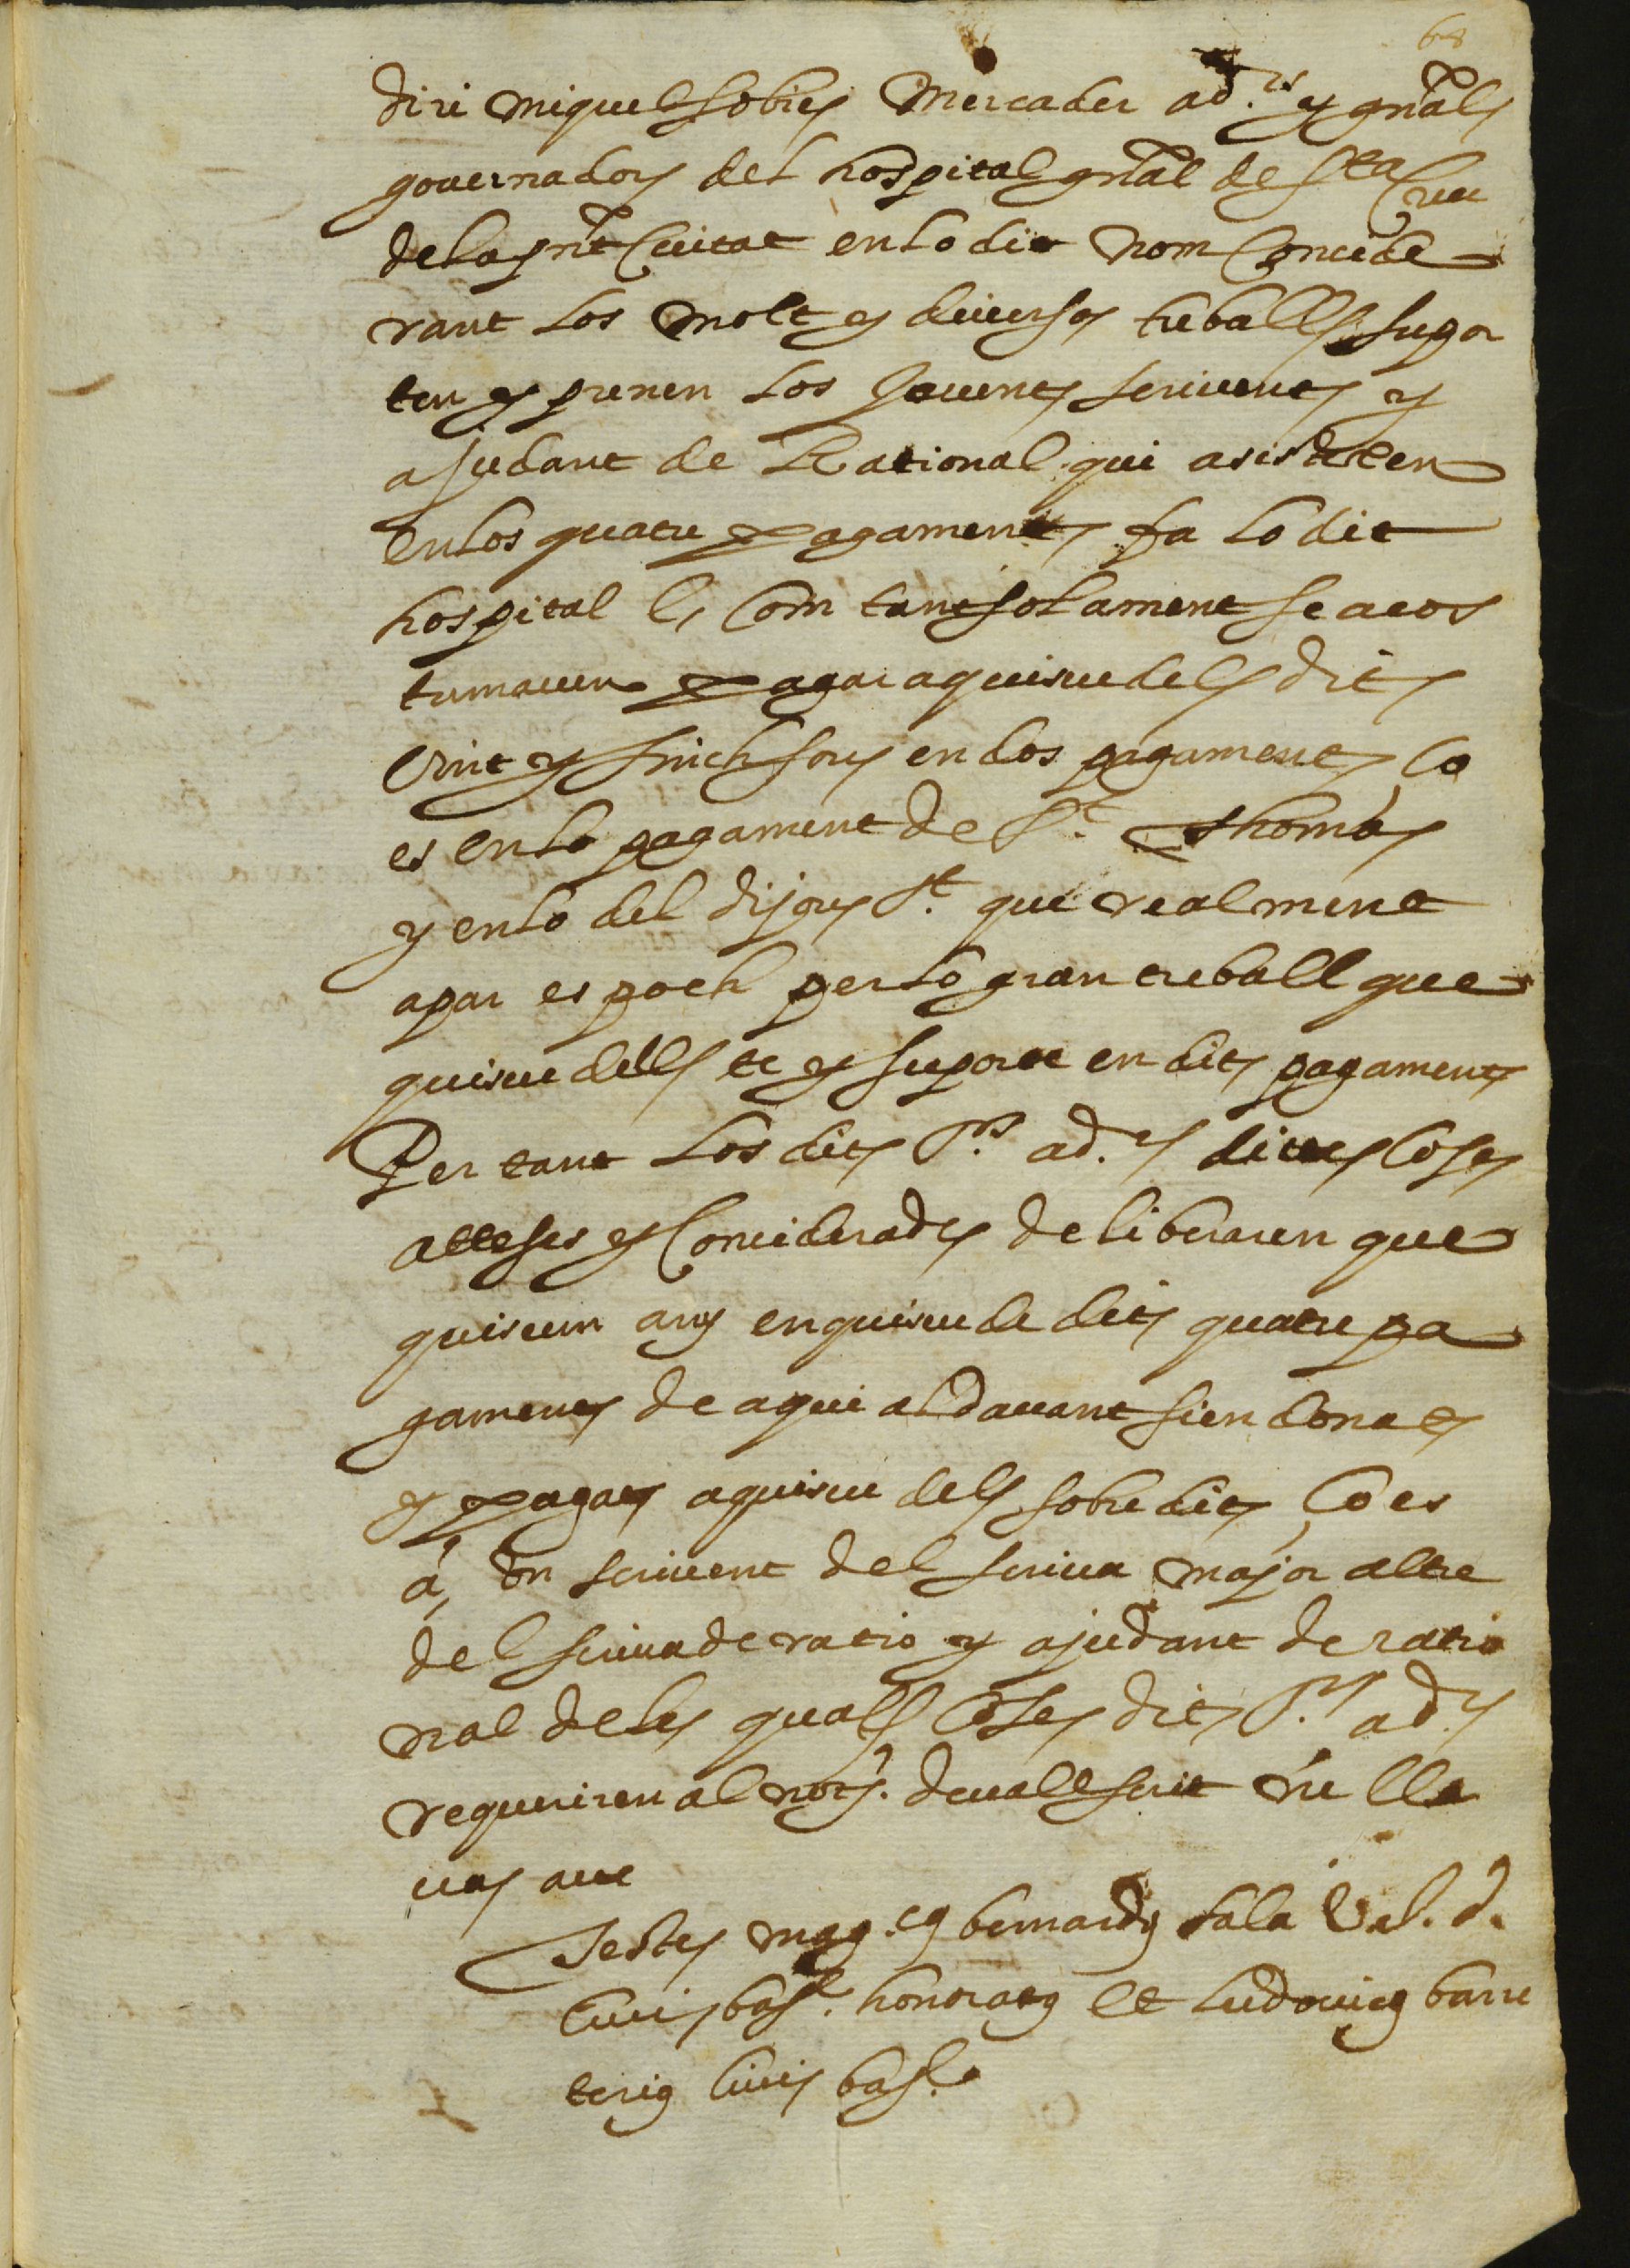 68
diri miquel sobies Mercader ad.rs y gñals
gouernadors del hospital gñal de Sta Creu
de la pñt Ciutat en lo dit nom Concide
rant los molts y diuersos treballs supor
ten y prenen los Jouens scriuents y
ajudant de Rational qui asisteten
en los quatre pagaments fa lo dit
hospital e, Com tantsolament se acos
tumauen pagar a quiscu dels dits
vint y sinch sous en dos pagaments, ço
es en lo pagament de St. Thomas
y en lo del dijous St. que realment
apar es poch per lo gran treball que
quiscu dells te y suporte en dits pagaments
Per tant los dits Srs. ad.rs dites Coses
atteses y Conciderades deliberaren que
quiscun any en quiscu de dits quatre pa
gaments de aqui al dauant sien donats
y pagats a quiscu dels sobredits ço es
a, vn scriuent del scriua major altre
del scriua de ratio y ajudant de ratio
nal de les quals Coses dits Srs. ad.rs
requeriren al not. deuall scrit ne lle
uas acte
Testes mag.cus bernardus sala V.J.D.
Ciuis bar. honoratus et ludouicus barre
terius Ciuis bar.